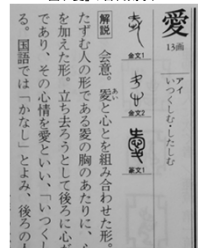 愛
13画
アイ
いつくしむ・したしむ
金文1
金文2
篆文1
解説
会意。㤅と心とを組み合わせた形。
たたずむ人の形である㤅の胸のあたりに、心
を加えた形。立ち去ろうとして後ろに心が
であり、その心情を愛といい、「いつくし
る。国語では「かなし」とよみ、後ろの